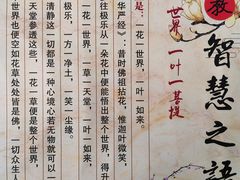 教
智慧之語
世界
一叶一菩提
是：一花一世界，一叶一如来。
华严经》：昔时佛祖拈花，惟迦叶微笑，
往极乐从一朵花中便能悟出整个世界，得升
一花一世界，一草一天堂，一叶一如来，
极乐，一方一净土，一笑一尘缘。
清静这一切都是一种心境心若无物就可以一
天堂参透这些，一花一草便是整个世界，
世界也便空如花草